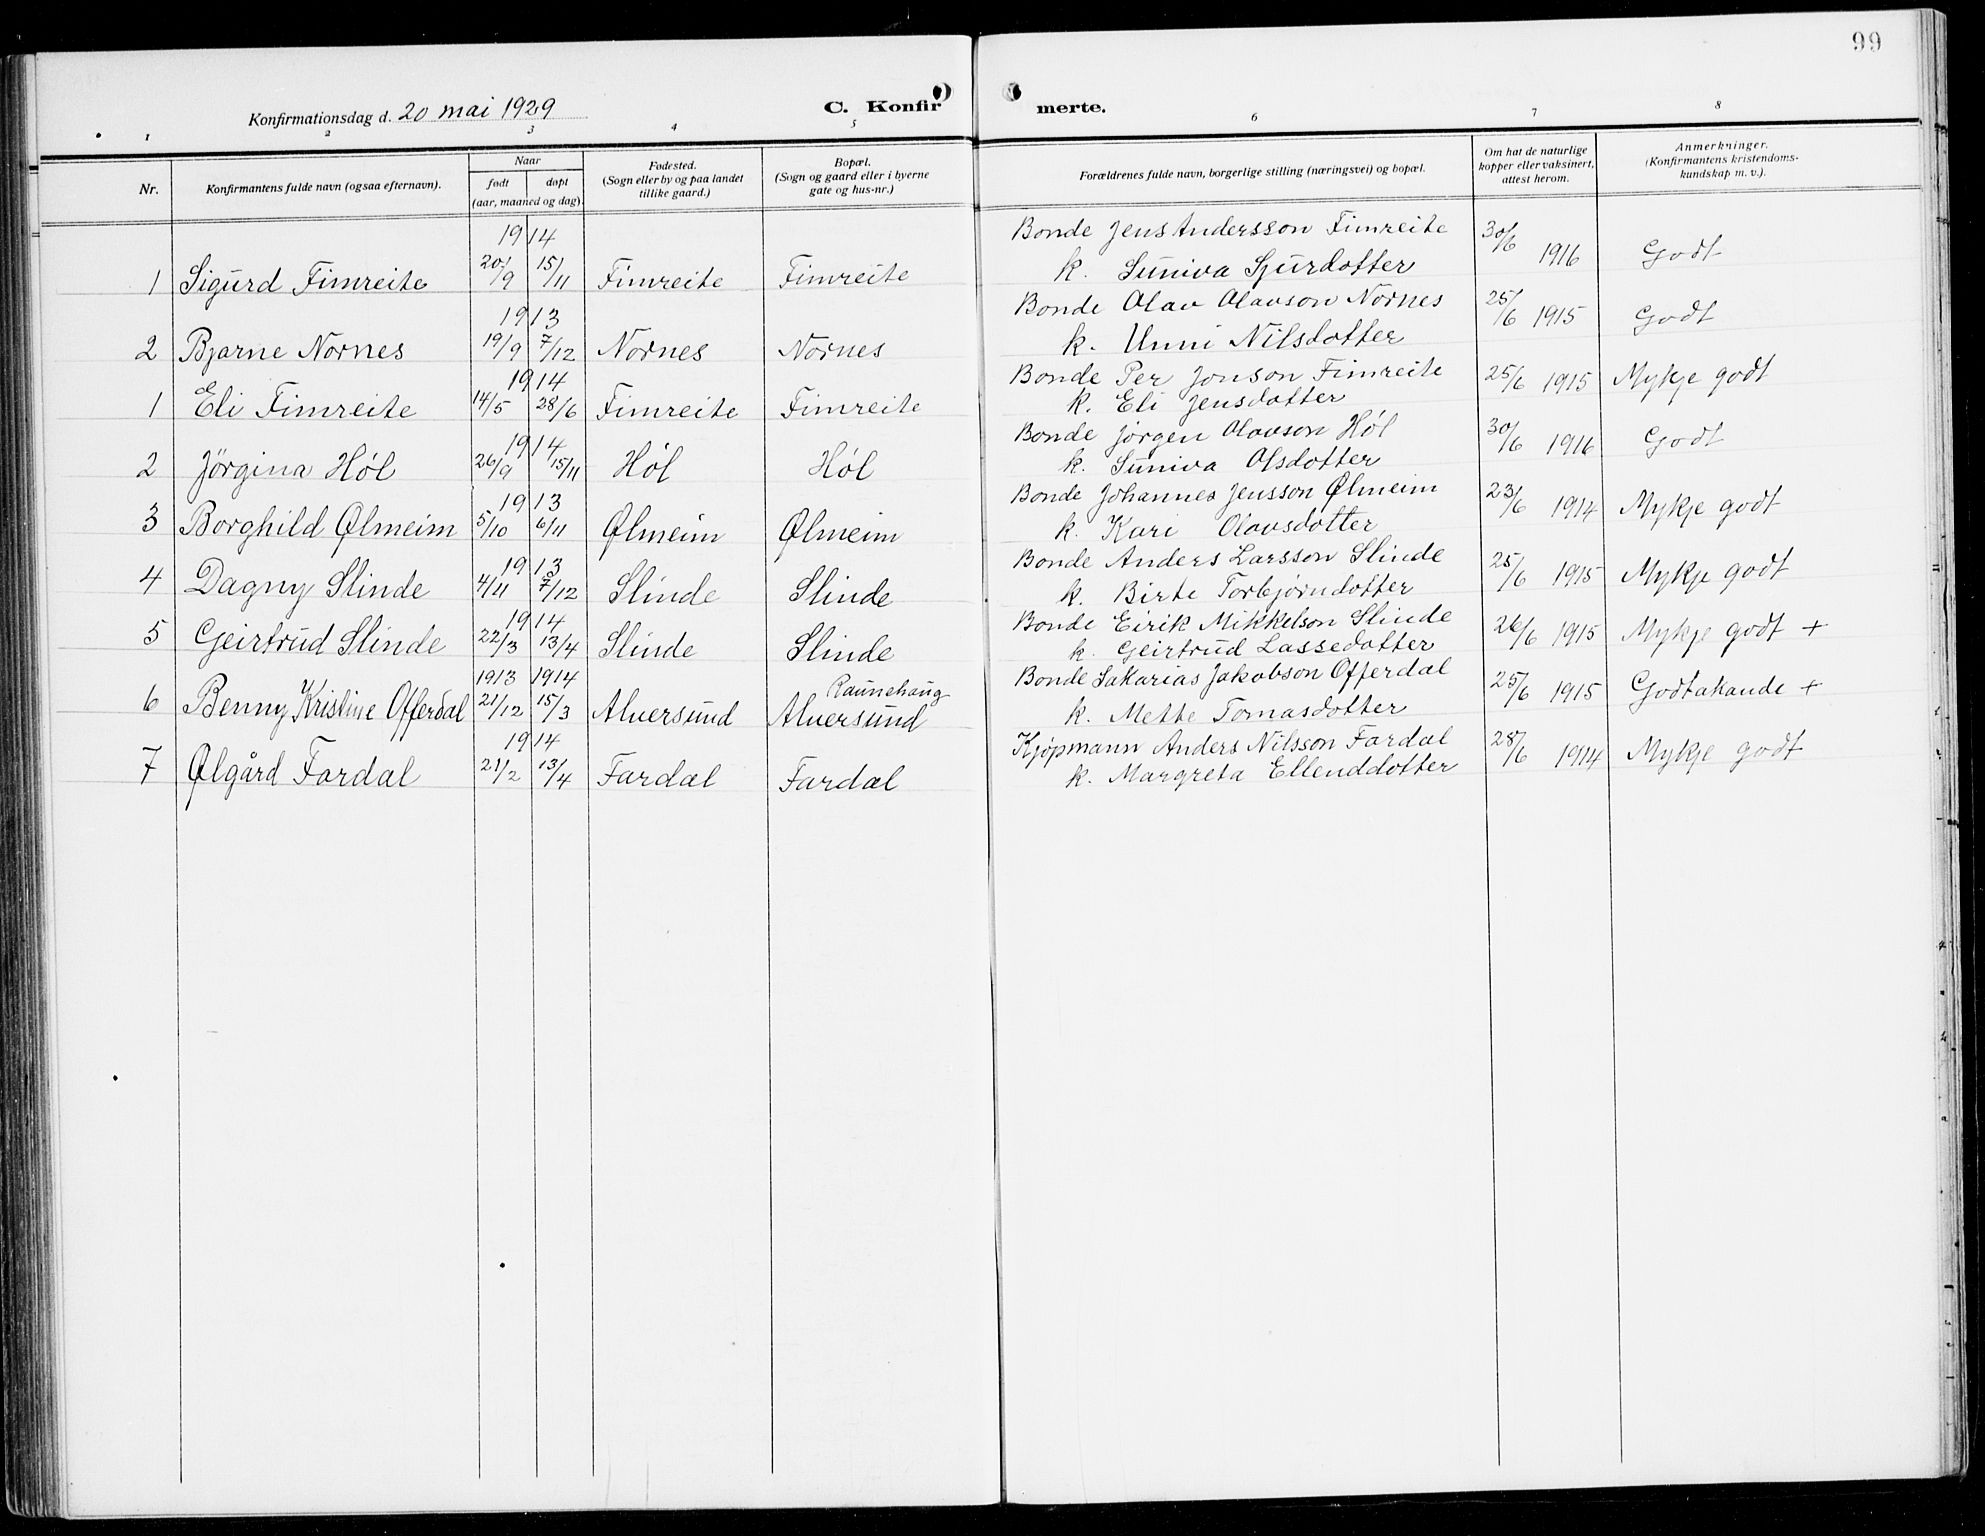 99
Konfirmationsdag d. 20 mai 1929 C. Konfir merte.
1 2 3 4 5 6 7 8
Nr. Konfirmantens fulde navn (ogsaa efternavn). Naar født døpt (aar, maaned og dag). Fødested. (Sogn eller by og paa landet tillike gaard.) Bopæl. (Sogn og gaard eller i byerne gate og hus-nr.) Forældrenes fulde navn, borgerlige stilling (næringsvei) og bopæl. Om hat de naturlige kopper eller vaksinert, attest herom. Anmerkninger. (Konfirmantens kristendoms- kundskap m. v.).
1914 Bonde Jens Andersson Fimreite
1 Sigurd Fimreite 20/9 15/11 Fimreite Fimreite k. Suniva Sjurdotter 30/6 1916 Godt
1913 Bonde Olav Olavson Nornes
2 Bjarne Nornes 19/9 7/12 Nornes Nornes k. Unni Nilsdotter 25/6 1915 Godt
1914 Bonde Per Jonson Fimreite
1 Eli Fimreite 14/5 28/6 Fimreite Fimreite k. Eli Jensdotter 25/6 1915 Mykje godt
1914 Bonde Jørgen Olavson Høl
2 Jörgina Høl 26/9 15/11 Høl Høl k. Suniva Olsdotter 30/6 1916 Godt
1913 Bonde Johannes Jensson Ølmeim
3 Borghild Ølmeim 5/10 6/11 Ølmeim Ølmeim k. Kari Olavsdotter 23/6 1914 Mykje godt
1913 Bonde Anders Larsson Slinde
4 Dagny Slinde 4/11 7/12 Slinde Slinde k. Birte Torbjørndotter 25/6 1915 Mykje godt
1914 Bonde Eirik Mikkelson Slinde
5 Geirtrud Slinde 22/3 13/4 Slinde Slinde k. Geirtrud Lassedotter 26/6 1915 Mykje godt +
1913 1914 Raunehaug Bonde Sakarias Jakobson Offerdal
6 Benny Kristine Offerdal 21/12 15/3 Alversund Alversund k. Mette Tomasdotter 25/6 1915 Godtakande +
1914 Kjøpmann Anders Nilsson Fardal
7 Ølgård Fardal 21/2 13/4 Fardal Fardal k. Margreta Ellenddotter 28/6 1914 Mykje godt